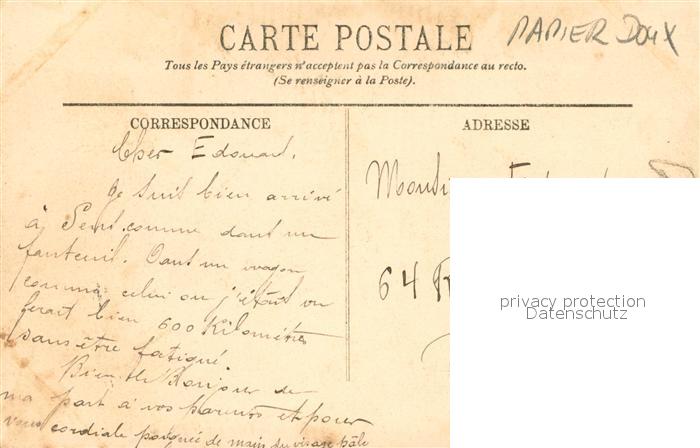 CARTE POSTALE
PAPIER DOUX
Tous les Pays étrangers n'acceptent pas la Correspondance au recto.
(Se renseigner à la Poste).
CORRESPONDANCE
Cher Edouard.
Je suit bien arrivé
à Sens comme dans un
fauteuil. Dans un wagon
comme celui ou j'étais on
ferait bien 600 Kilomètres
sans être fatigué
Bien le Bonjour de
ma part à vos parents et pour
vous cordiale poignée de main du visage pâle
ADRESSE
64
privacy protection
Datenschutz